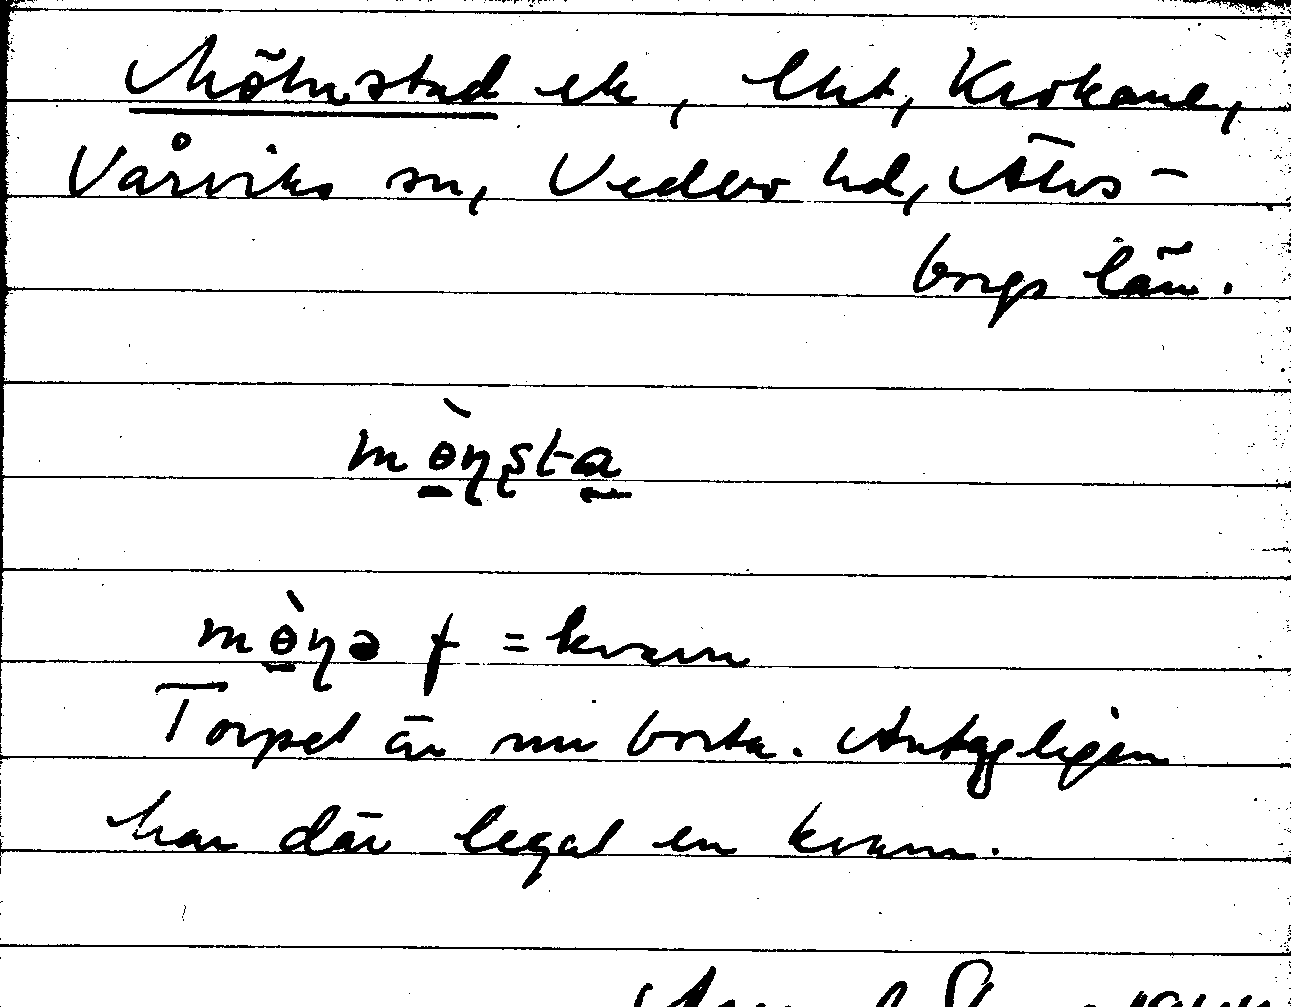 Mölnstad ek, lht, Krokane,
Vårviks sn, Vedbo hd, Älvs-
borgs län.
mɵ̀ɳʂta
mɵ̀ɳə f = kvarn
Torpet är nu borta. Antagligen
har där legat en kvarn.